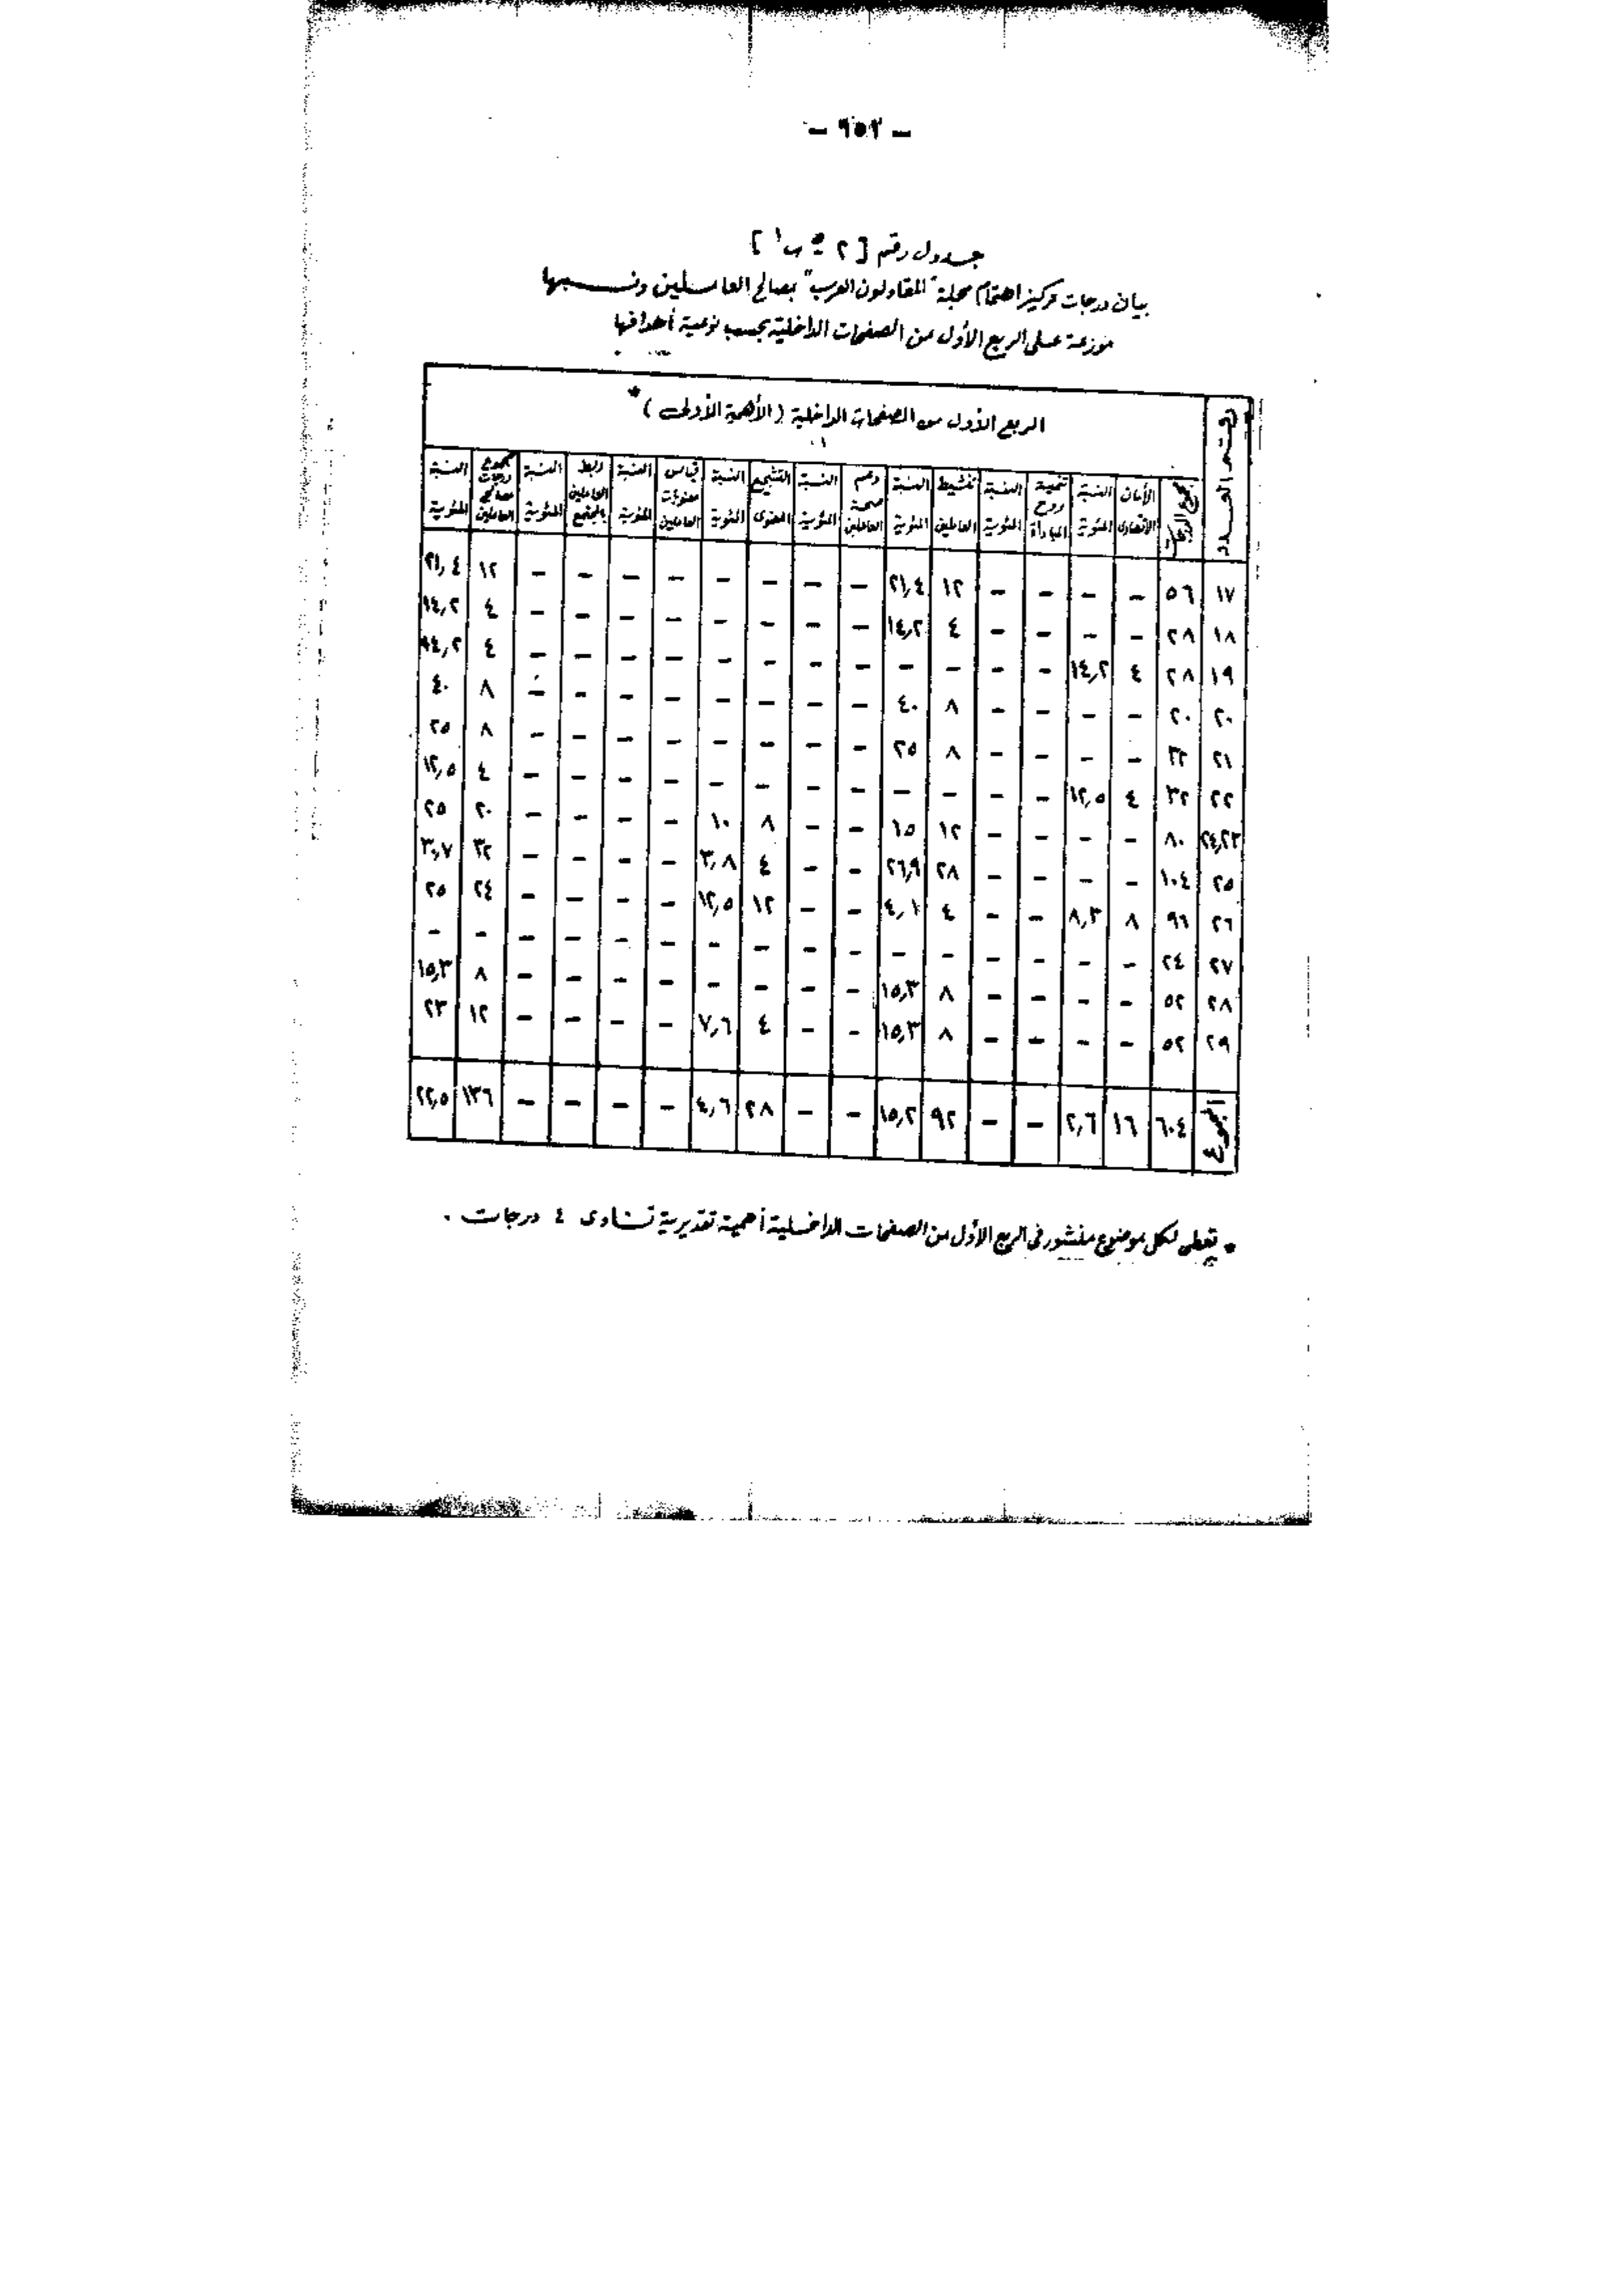 – ٦٥٢ –
جدول رقم [ ٢ - ب١ ]
بيان درجات تركيز اهتمام مجلة "المقاولون العرب" بصالح العاملين ونسبها
موزعة على الربع الأول من الصفحات الداخلية بحسب نوعية أهدافها
رقم العدد | الربع الأول من الصفحات الداخلية (الأهمية الأولى) *
مجموع الدرجات | الأمان الاقتصادى | النسبة المئوية | تنمية روح المبادأة | النسبة المئوية | تنشيط العاملين | النسبة المئوية | دعم صحة العاملين | النسبة المئوية | التشجيع المعنوى | النسبة المئوية | قياس معنويات العاملين | النسبة المئوية | ربط العاملين بالمجتمع | النسبة المئوية | مجموع درجات مصالح العاملين | النسبة المئوية
١٧ | ٥٦ | – | – | – | – | ١٢ | ٢١,٤ | – | – | – | – | – | – | – | – | ١٢ | ٢١,٤
١٨ | ٢٨ | – | – | – | – | ٤ | ١٤,٢ | – | – | – | – | – | – | – | – | ٤ | ١٤,٢
١٩ | ٢٨ | ٤ | ١٤,٢ | – | – | – | – | – | – | – | – | – | – | – | – | ٤ | ١٤,٢
٢٠ | ٢٠ | – | – | – | – | ٨ | ٤٠ | – | – | – | – | – | – | – | – | ٨ | ٤٠
٢١ | ٣٢ | – | – | – | – | ٨ | ٢٥ | – | – | – | – | – | – | – | – | ٨ | ٢٥
٢٢ | ٣٢ | ٤ | ١٢,٥ | – | – | – | – | – | – | – | – | – | – | – | – | ٤ | ١٢,٥
٢٤,٢٣ | ٨٠ | – | – | – | – | ١٢ | ١٥ | – | – | ٨ | ١٠ | – | – | – | – | ٢٠ | ٢٥
٢٥ | ١٠٤ | – | – | – | – | ٢٨ | ٢٦,٩ | – | – | ٤ | ٣,٨ | – | – | – | – | ٣٢ | ٣٠,٧
٢٦ | ٩٦ | ٨ | ٨,٣ | – | – | ٤ | ٤,١ | – | – | ١٢ | ١٢,٥ | – | – | – | – | ٢٤ | ٢٥
٢٧ | ٢٤ | – | – | – | – | – | – | – | – | – | – | – | – | – | – | – | –
٢٨ | ٥٢ | – | – | – | – | ٨ | ١٥,٣ | – | – | – | – | – | – | – | – | ٨ | ١٥,٣
٢٩ | ٥٢ | – | – | – | – | ٨ | ١٥,٣ | – | – | ٤ | ٧,٦ | – | – | – | – | ١٢ | ٢٣
المجموع | ٦٠٤ | ١٦ | ٢,٦ | – | – | ٩٢ | ١٥,٢ | – | – | ٢٨ | ٤,٦ | – | – | – | – | ١٣٦ | ٢٢,٥
* تعطى لكل موضوع منشور فى الربع الأول من الصفحات الداخلية أهمية تقديرية تساوى ٤ درجات .